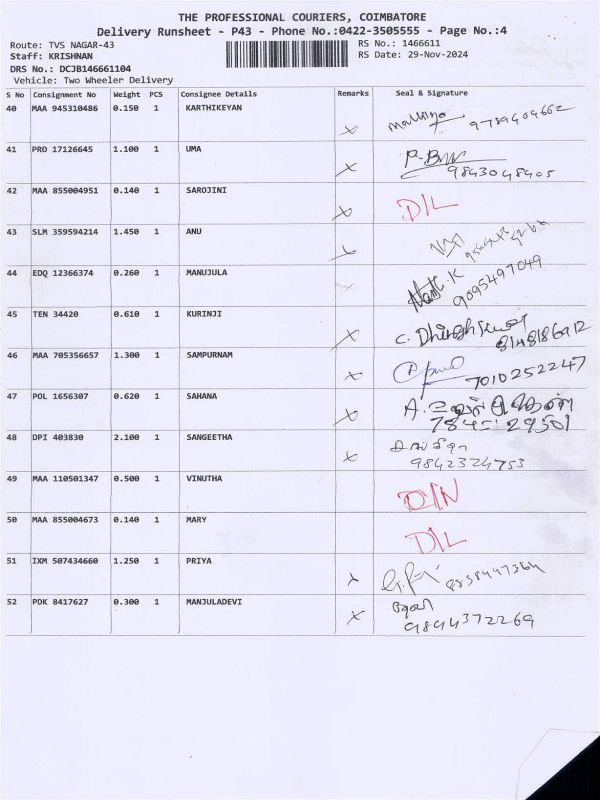 THE PROFESSIONAL COURIERS, COIMBATORE
Delivery Runsheet - P43 - Phone No.:0422-3505555 - Page No.:4
Route: TVS NAGAR-43 RS No.: 1466611
Staff: KRISHNAN RS Date: 29-Nov-2024
DRS No.: DCJB146661104
Vehicle: Two Wheeler Delivery
S No Consignment No Weight PCS Consignee Details Remarks Seal & Signature
40 MAA 945310486 0.150 1 KARTHIKEYAN
9789409662
41 PRO 17126645 1.100 1 UMA
9843048405
42 MAA 855004951 0.140 1 SAROJINI D/L
43 SLM 359594214 1.450 1 ANU
44 EDQ 12366374 0.260 1 MANUJULA
9095497049
45 TEN 34420 0.610 1 KURINJI
8148186912
46 MAA 705356657 1.300 1 SAMPURNAM
7010252247
47 POL 1656307 0.620 1 SAHANA
48 DPI 403830 2.100 1 SANGEETHA
9842324753
49 MAA 110501347 0.500 1 VINUTHA D/N
50 MAA 855004673 0.140 1 MARY D/L
51 IXM 507434660 1.250 1 PRIYA
52 PDK 8417627 0.300 1 MANJULADEVI
9894372269